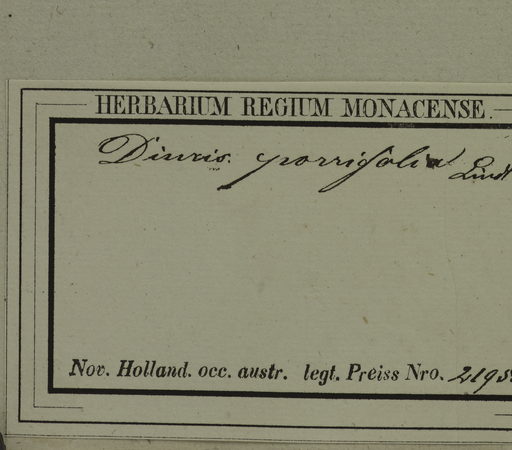 HERBARIUM REGIUM MONACENSE.
Diuris porrifolia Lindl
Nov. Holland. occ. austr. legt. Preiss Nro. 219